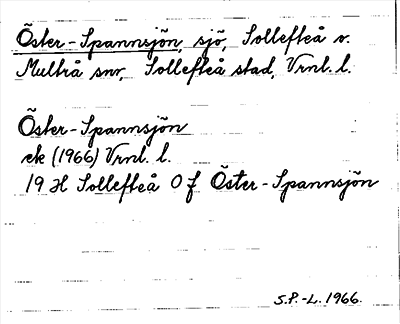 Öster-Spannsjön, sjö, Sollefteå v.
Multrå snv, Sollefteå stad, Vrnl. l.
Öster-Spannsjön
ek (1966) Vrnl. l.
19 H Sollefteå 0 f Öster-Spannsjön
S.P.-L. 1966.